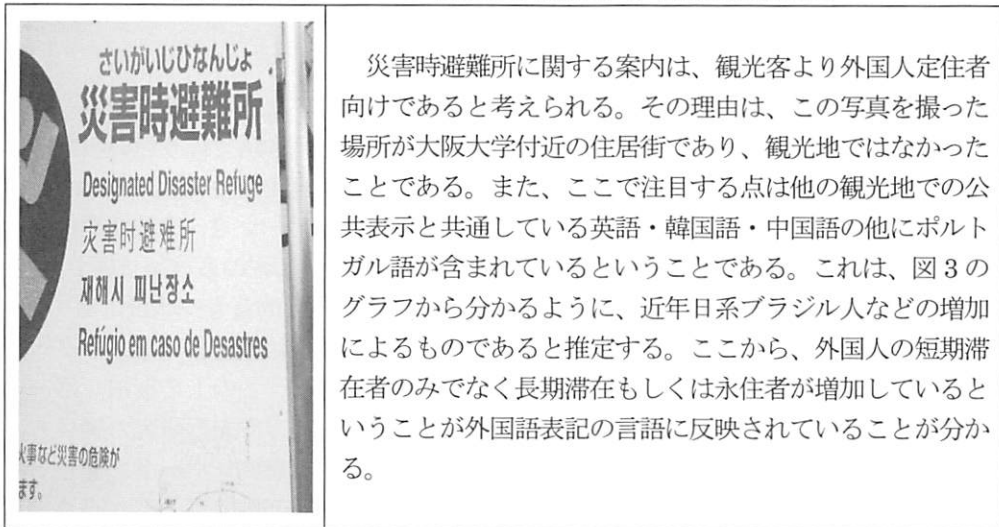 さいがいじひなんじょ
災害時避難所
Designated Disaster Refuge
灾害时避难所
재해시 피난장소
Refúgio em caso de Desastres
火事など災害の危険が
ます。
災害時避難所に関する案内は、観光客より外国人定住者
向けであると考えられる。その理由は、この写真を撮った
場所が大阪大学付近の住居街であり、観光地ではなかった
ことである。また、ここで注目する点は他の観光地での公
共表示と共通している英語・韓国語・中国語の他にポルト
ガル語が含まれているということである。これは、図3の
グラフから分かるように、近年日系ブラジル人などの増加
によるものであると推定する。ここから、外国人の短期滞
在者のみでなく長期滞在もしくは永住者が増加していると
いうことが外国語表記の言語に反映されていることが分か
る。